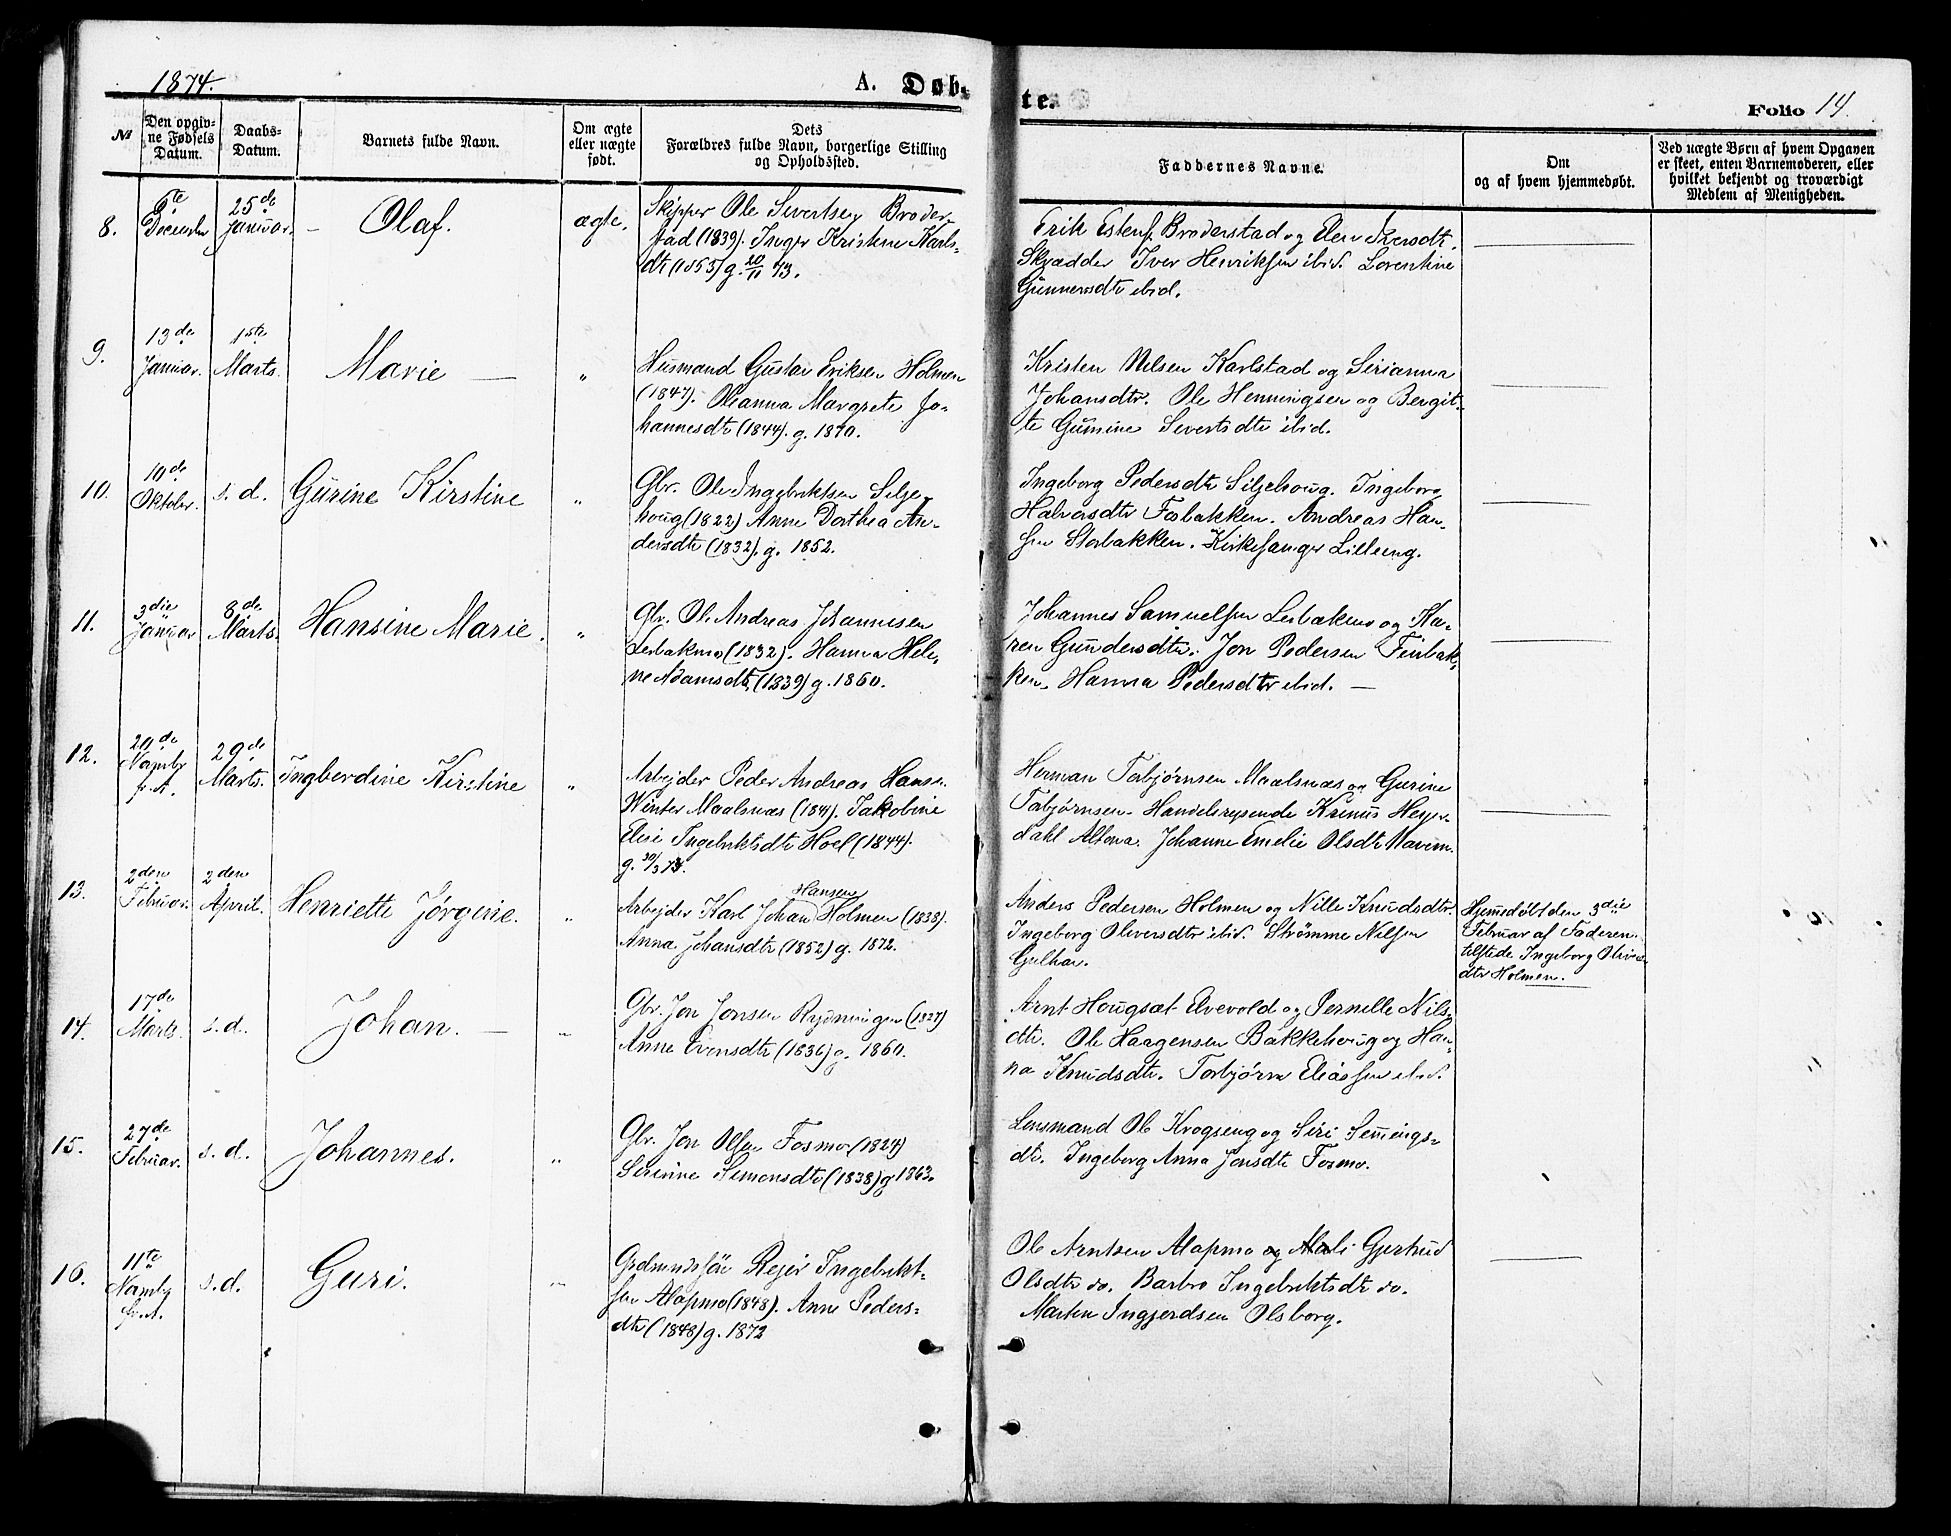 1874.
A. Døb-
te.
Folio 14.
№
Den opgiv-
ne Fødsels
Datum.
Daabs-
Datum.
Barnets fulde Navn.
Om ægte
eller uægte
født.
Dets
Forældres fulde Navn, borgerlige Stilling
og Opholdssted.
Faddernes Navne.
Om
og af hvem hjemmedøbt.
Ved uægte Børn af hvem Opgaven
er skeet, enten Barnemoderen, eller
hvilket bekjendt og troværdigt
Medlem af Menigheden.
8.
6te
December
25de
Januar.
Olaf.
ægte.
Skipper Ole Sivertsen Broder-
stad (1839). Inger Kristine Karls-
dtr (1853) g. 20/11 73.
Erik Estens. Broderstad og Elen Iversdtr.
Skrædder Iver Henriksen ibid. Lorentine
Gunnersdtr ibid.
9.
13de
Januar.
1ste
Marts.
Marie
"
Husmand Gustav Eriksen Holmen
(1847). Oleanna Margrete Jo-
hannesdtr (1844). g. 1870.
Kristen Nilsen Karlstad og Sirianna
Johansdtr. Ole Henningsen og Bergit-
te Gumine Sivertsdtr ibid.
10.
19de
Oktober.
s. d.
Gurine Kirstine
"
Gbr. Ole Ingebriktsen Silje-
houg (1822) Anne Dorthea An-
dersdtr (1832). g. 1852.
Ingeborg Pedersdtr Siljehoug. Ingeborg
Halvorsdtr Fosbakken. Andreas Han-
sen Storbakken. Kirkesanger Lilleeng.
11.
3die
Januar
8de
Marts.
Hansine Marie.
"
Gbr. Ole Andreas Johannesen
Lesbakmo (1832). Hanna Hele-
ne Adamsdtr (1839) g. 1860.
Johannes Samuelsen Lesbakmo og Ka-
ren Gundersdtr. Jon Pedersen Finbak-
ken. Hanna Pedersdtr ibid.
12.
29de
Marts.
Ingberdine Kirstine
"
Arbejder Peder Andreas Hans.
Winter Maalsnæs (1841). Jakobine
Elise Ingebriktsdtr Hoel (1844).
g. 30/3 73.
Herman Torbjørnsen Maalsnæs og Gurine
Torbjørnsen. Handelsreisende Heyer-
dahl Altona. Johanne Emelie Olsdtr
13.
2den
Februar.
2den
April.
Henriette Jørgine.
"
Hansen
Arbejder Karl Johan Holmen (1838).
Anna Johansdtr (1852) g. 1872.
Anders Pedersen Holmen og Nille Knudsdtr.
Ingeborg Oliversdtr ibid. Strømme Nilsen
Gulhav.
Hjemedøbt den 3die
Februar af Faderen.
tilstede Ingeborg Olivers
dtr Holmen.
14.
17de
Marts.
s. d.
Johan.
"
Gbr. Jon Jonsen Rydningen (1827)
Anne Evensdtr (1836) g. 1860.
Arnt Hougsæt Elvevold og Pernille Nils-
dtr. Ole Haagensen Bakkehoug og Han-
na Knudsdtr. Torbjørn Eliassen ibid.
15.
27de
Februar.
s. d.
Johannes.
"
Gbr. Jon Olsen Fosmo (1824)
Serinne Simonsdtr (1838) g 1863.
Lensmand Ole Krogseng og Siri Semings-
dtr. Ingeborg Anna Jonsdtr Fosmo.
16.
11te
Novmbr
f. A.
s. d.
Guri.
"
Rejer Ingebrikt-
sen Alapmo (1848). Anne Peders-
dtr (1848) g. 1872
Ole Arntsen Alapmo og Gjertrud
Olsdtr do. Barbro Ingebriktsdtr do.
Morten Ingjerdsen Olsborg.